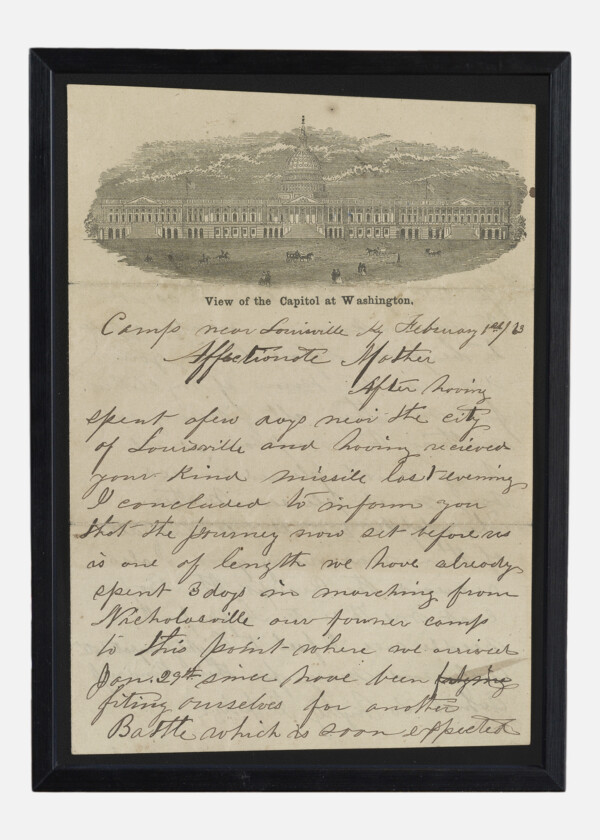 View of the Capitol at Washington.
Camp near Louisville Ky February 1st/63
Affectionate Mother
After having
spent afew days near the city
of Louisville and having recieved
your kind missile last evening
I concluded to inform you
that the journey now set before us
is one of length we have already
spent 3 days in marching from
Nicholasville our former camp
to this point where we arrived
Jan. 29th since have been
fiting ourselves for another
Battle which is soon expected